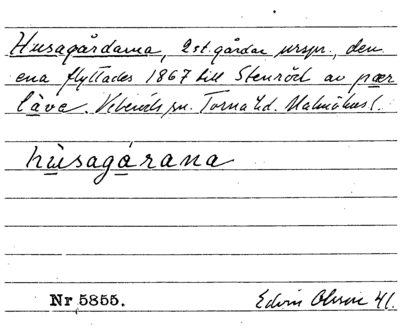 Husagårdarna, 2 st. gårdar urspr., den
ena flyttades 1867 till Stenröd av pær
låva. Veberöds sn. Torna hd. Malmöhus l.
hùsagárana
Nr 5855. Edvin Olsson 41.